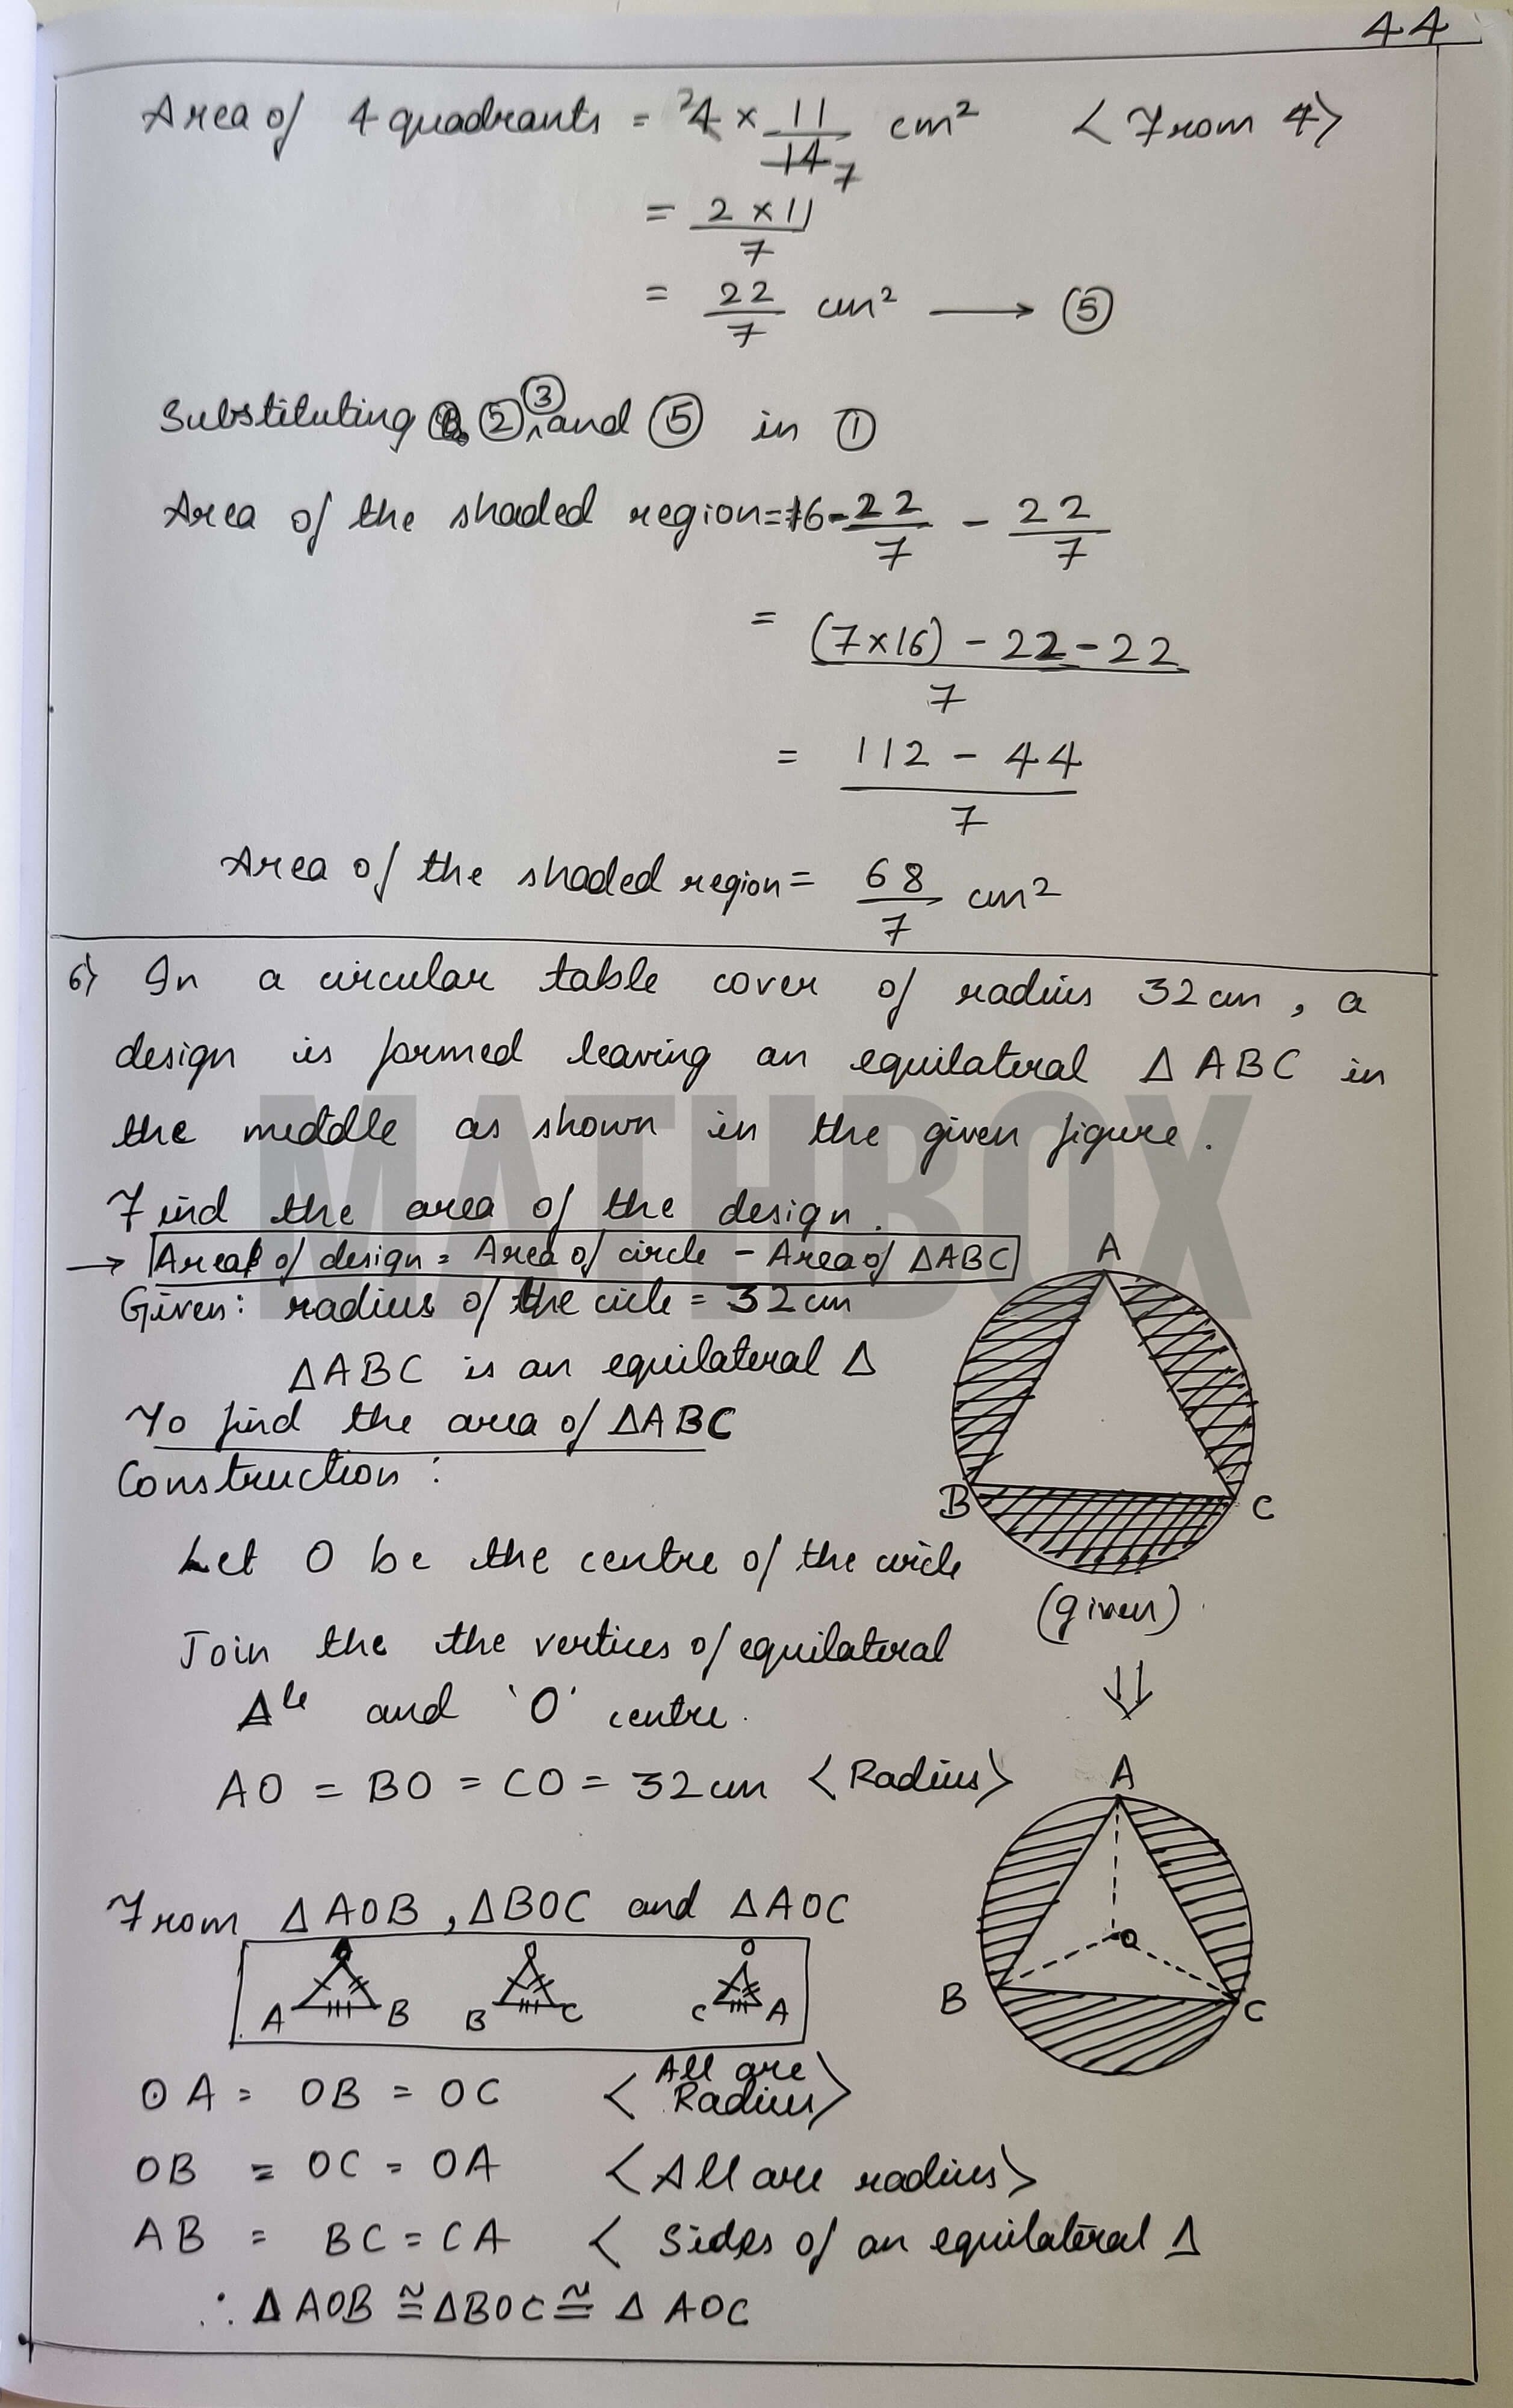 44
Area of 4 quadrants = ²4 × 11/14 7 cm² <From 4>
= 2 × 11/7
= 22/7 cm² → ⑤
Substituting ②, ③ and ⑤ in ①
Area of the shaded region = 16 - 22/7 - 22/7
= (7×16) - 22 - 22/7
= 112 - 44/7
Area of the shaded region = 68/7 cm²
6) In a circular table cover of radius 32 cm, a
design is formed leaving an equilateral Δ ABC in
the middle as shown in the given figure.
Find the area of the design.
→ Area of design = Area of circle - Area of ΔABC
Given: radius of the circle = 32 cm
ΔABC is an equilateral Δ
To find the area of ΔABC
Construction:
Let O be the centre of the circle
Join the the vertices of equilateral
Δle and 'O' centre.
AO = BO = CO = 32 cm <Radius>
From ΔAOB, ΔBOC and ΔAOC
O O O
A B B C C A
OA = OB = OC <All are Radius>
OB = OC = OA <All are radius>
AB = BC = CA < Sides of an equilateral Δ
∴ ΔAOB ≅ ΔBOC ≅ ΔAOC
A
B C
(given)
⇓
A
O
B C
MATHBOX